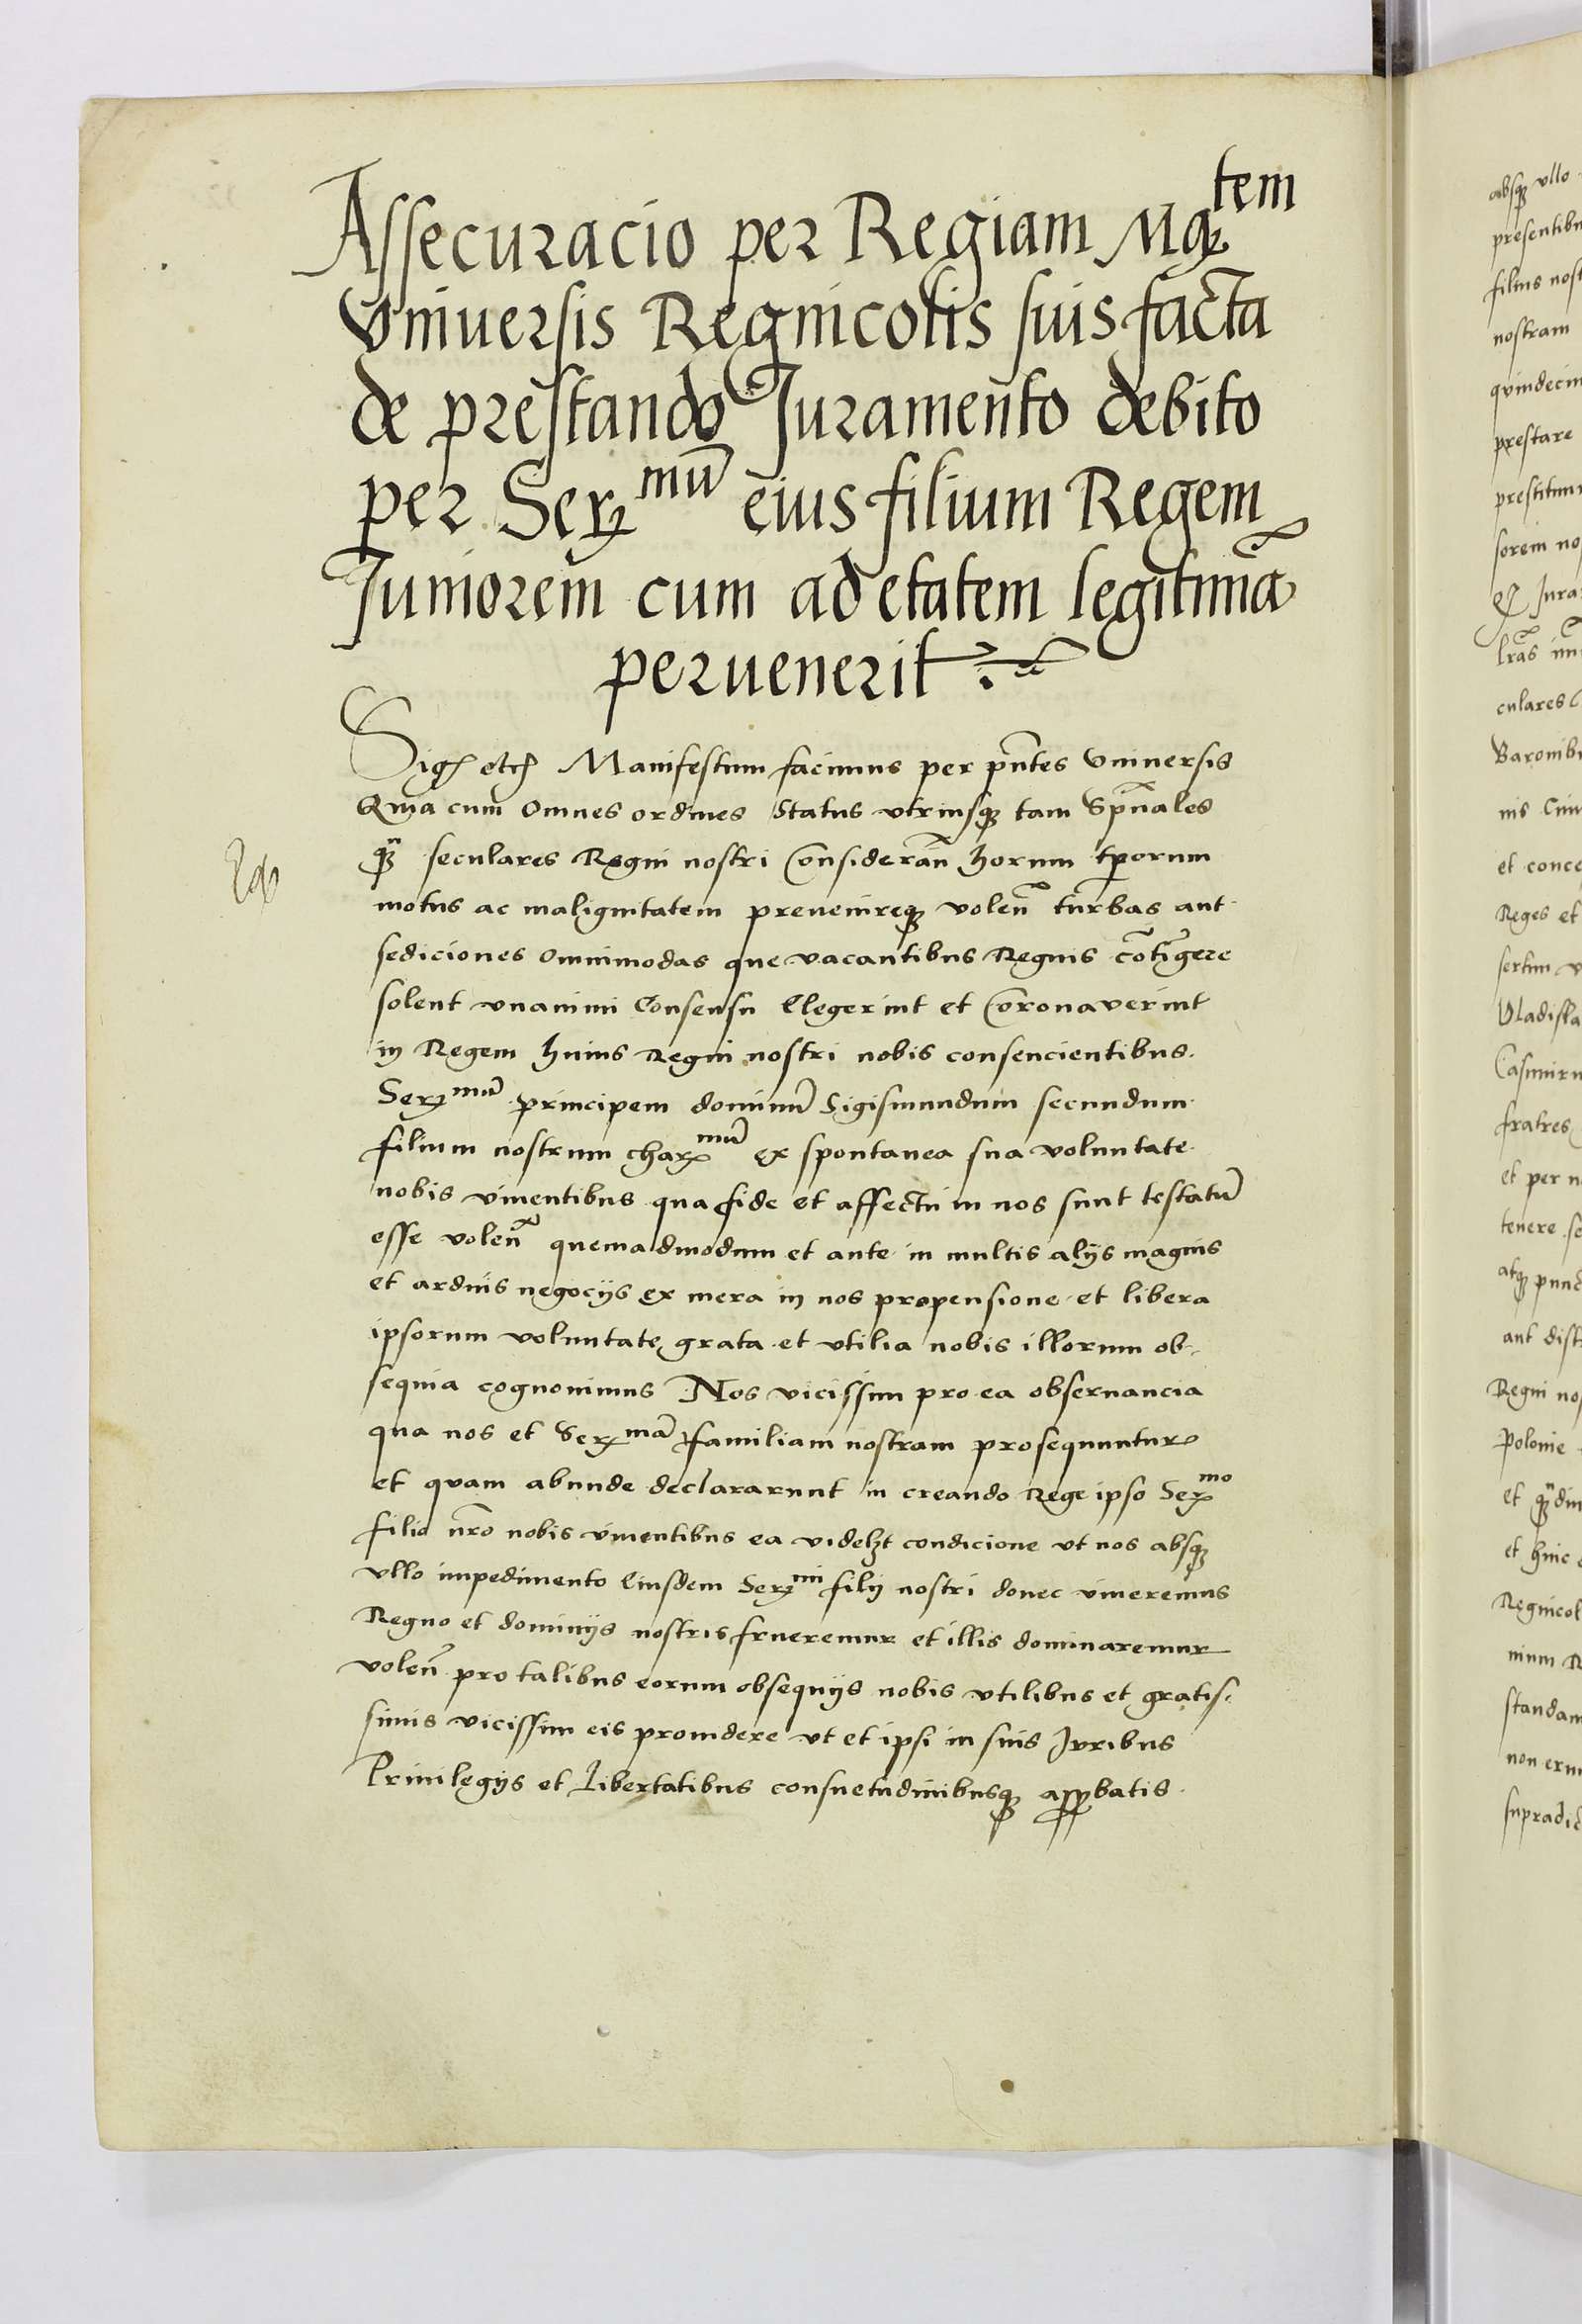 Assecuracio per Regiam Mạtem
Vniuersis Regnicolis suis facta
de prestando Juramento debito
per Serꝫmū eius filium Regem
Juniorem cum ad etatem legitimā
peruenerit
Sigꝭ etcꝭ Manifestum facimus per pñtes Vniuersis
Quia cum omnes ordines Status vtriusqꝫ tam Spūales
qꝫ̄ seculares Regni nostri Considerañ horum tꝑorum
motus ac malignitatem preuenireqꝫ voleñ turbas aut
sediciones omnimodas que vacantibus Regnis cōtīgere
solent vnanimi Consensu Elegerint et Coronaverint
in Regem huius Regni nostri nobis consencientibus.
Serꝫmū principem dominū Sigismundum secundum
filium nostrum charꝫmū ex spontanea sua voluntate
nobis viuentibus qua fide et affectu in nos sunt testatū
esse voleñ quemadmodum et ante in multis alijs magnis
et arduis negocijs ex mera in nos propensione et libera
ipsorum voluntate grata et vtilia nobis illorum ob-
sequia cognouimus Nos vicissim pro ea obseruancia
qua nos et Serꝫmā familiam nostram prosequuntur
et quam abunde declararunt in creando Rege ipso Serꝫmo
filio nr̄o nobis viuentibus ea videlꝫt condicione vt nos absqꝫ
vllo impedimento Eiusdem Serꝫmi filij nostri donec viueremus
Regno et dominijs nostris frueremur et illis dominaremur
voleñ pro talibus eorum obsequijs nobis vtilibus et gratis-
simis vicissim eis prouidere vt et ipsi in suis Juribus
Priuilegijs et Libertatibus consuetudinibusqꝫ apꝓbatis
absqꝫ vllo
nostram
prestare
culares
et conce
Reges et
Casimiru
fratres
et per n
atqꝫ punc
aut dist
Regni nos
Polonie
Regnicol
standam
supradic